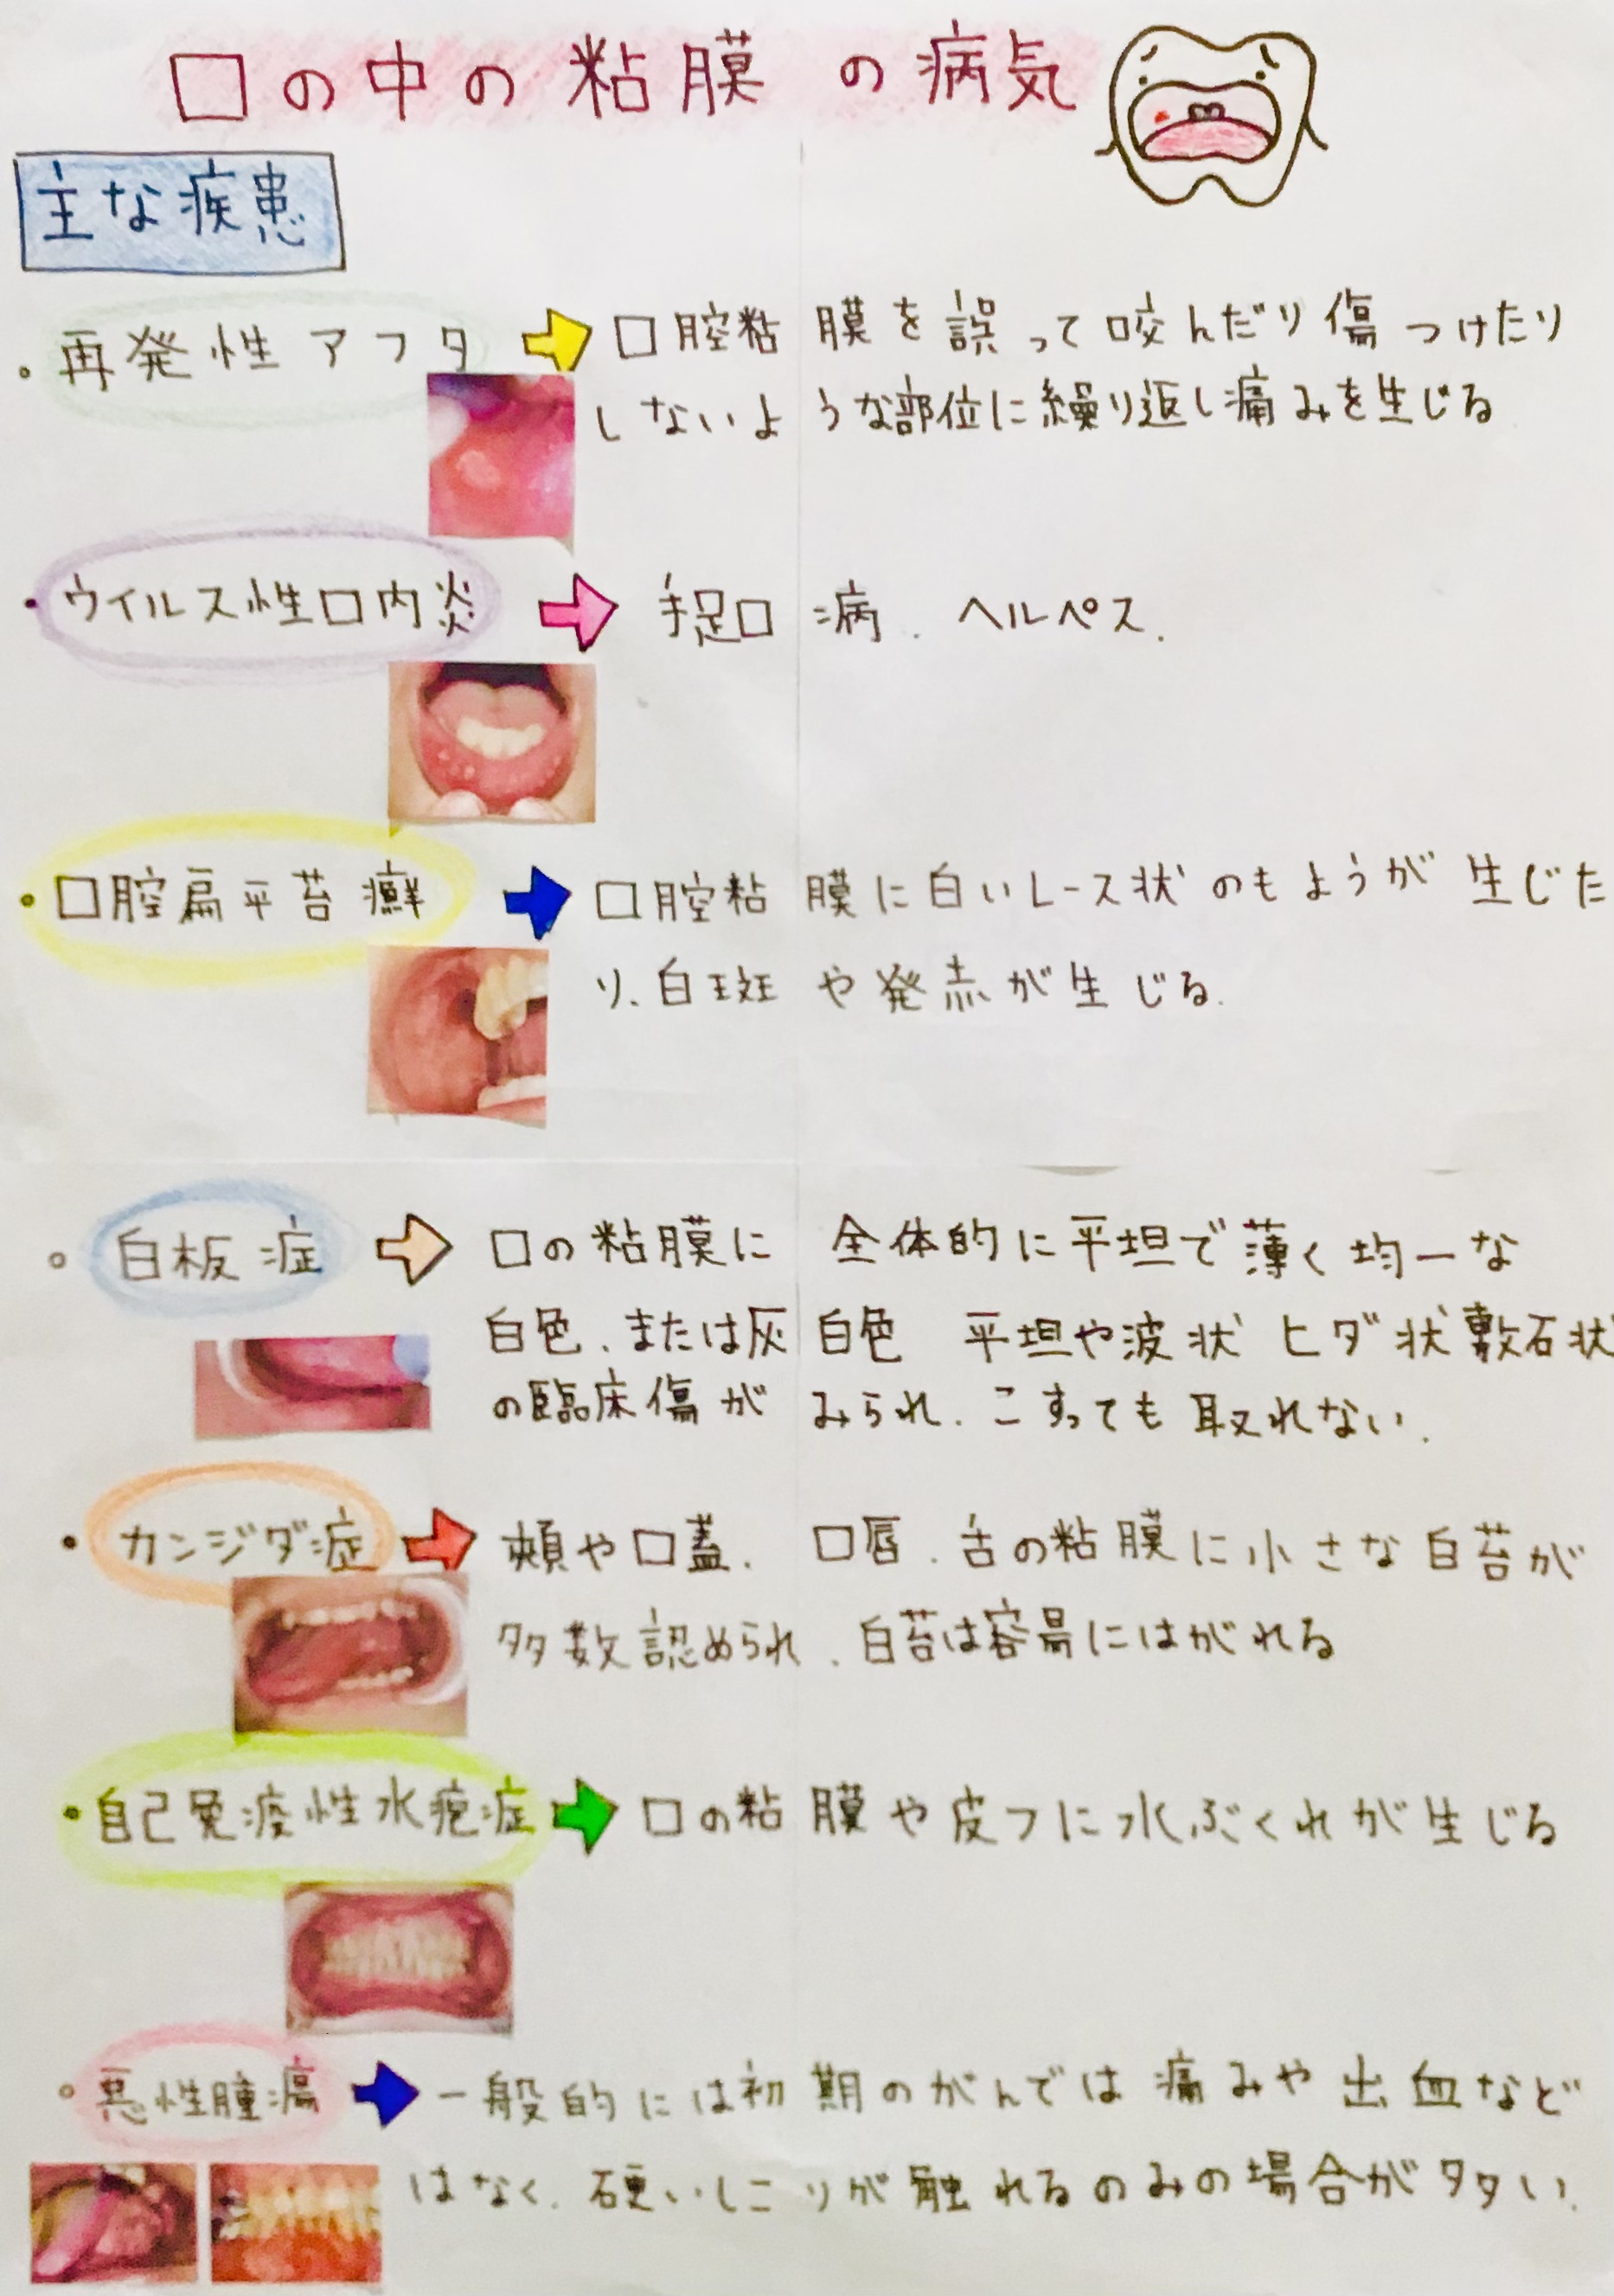 口の中の粘膜の病気
主な疾患
・再発性アフタ
口腔粘膜を誤って咬んだり傷つけたり
しないような部位に繰り返し痛みを生じる
・ウイルス性口内炎
手足口病、ヘルペス、
・口腔扁平苔癬
口腔粘膜に白いレース状のもようが生じた
り、白斑や発赤が生じる、
・白板症
口の粘膜に全体的に平坦で薄く均一な
白色、または灰白色 平坦や波状 ヒダ状敷石状
の臨床傷がみられ、こすっても取れない、
・カンジダ症
頬や口蓋、口唇、舌の粘膜に小さな白苔が
多数認められ、白苔は容易にはがれる
・自己免疫性水疱症
口の粘膜や皮フに水ぶくれが生じる
・悪性腫瘍
一般的には初期のがんでは痛みや出血など
はなく、硬いしこりが触れるのみの場合が多い、